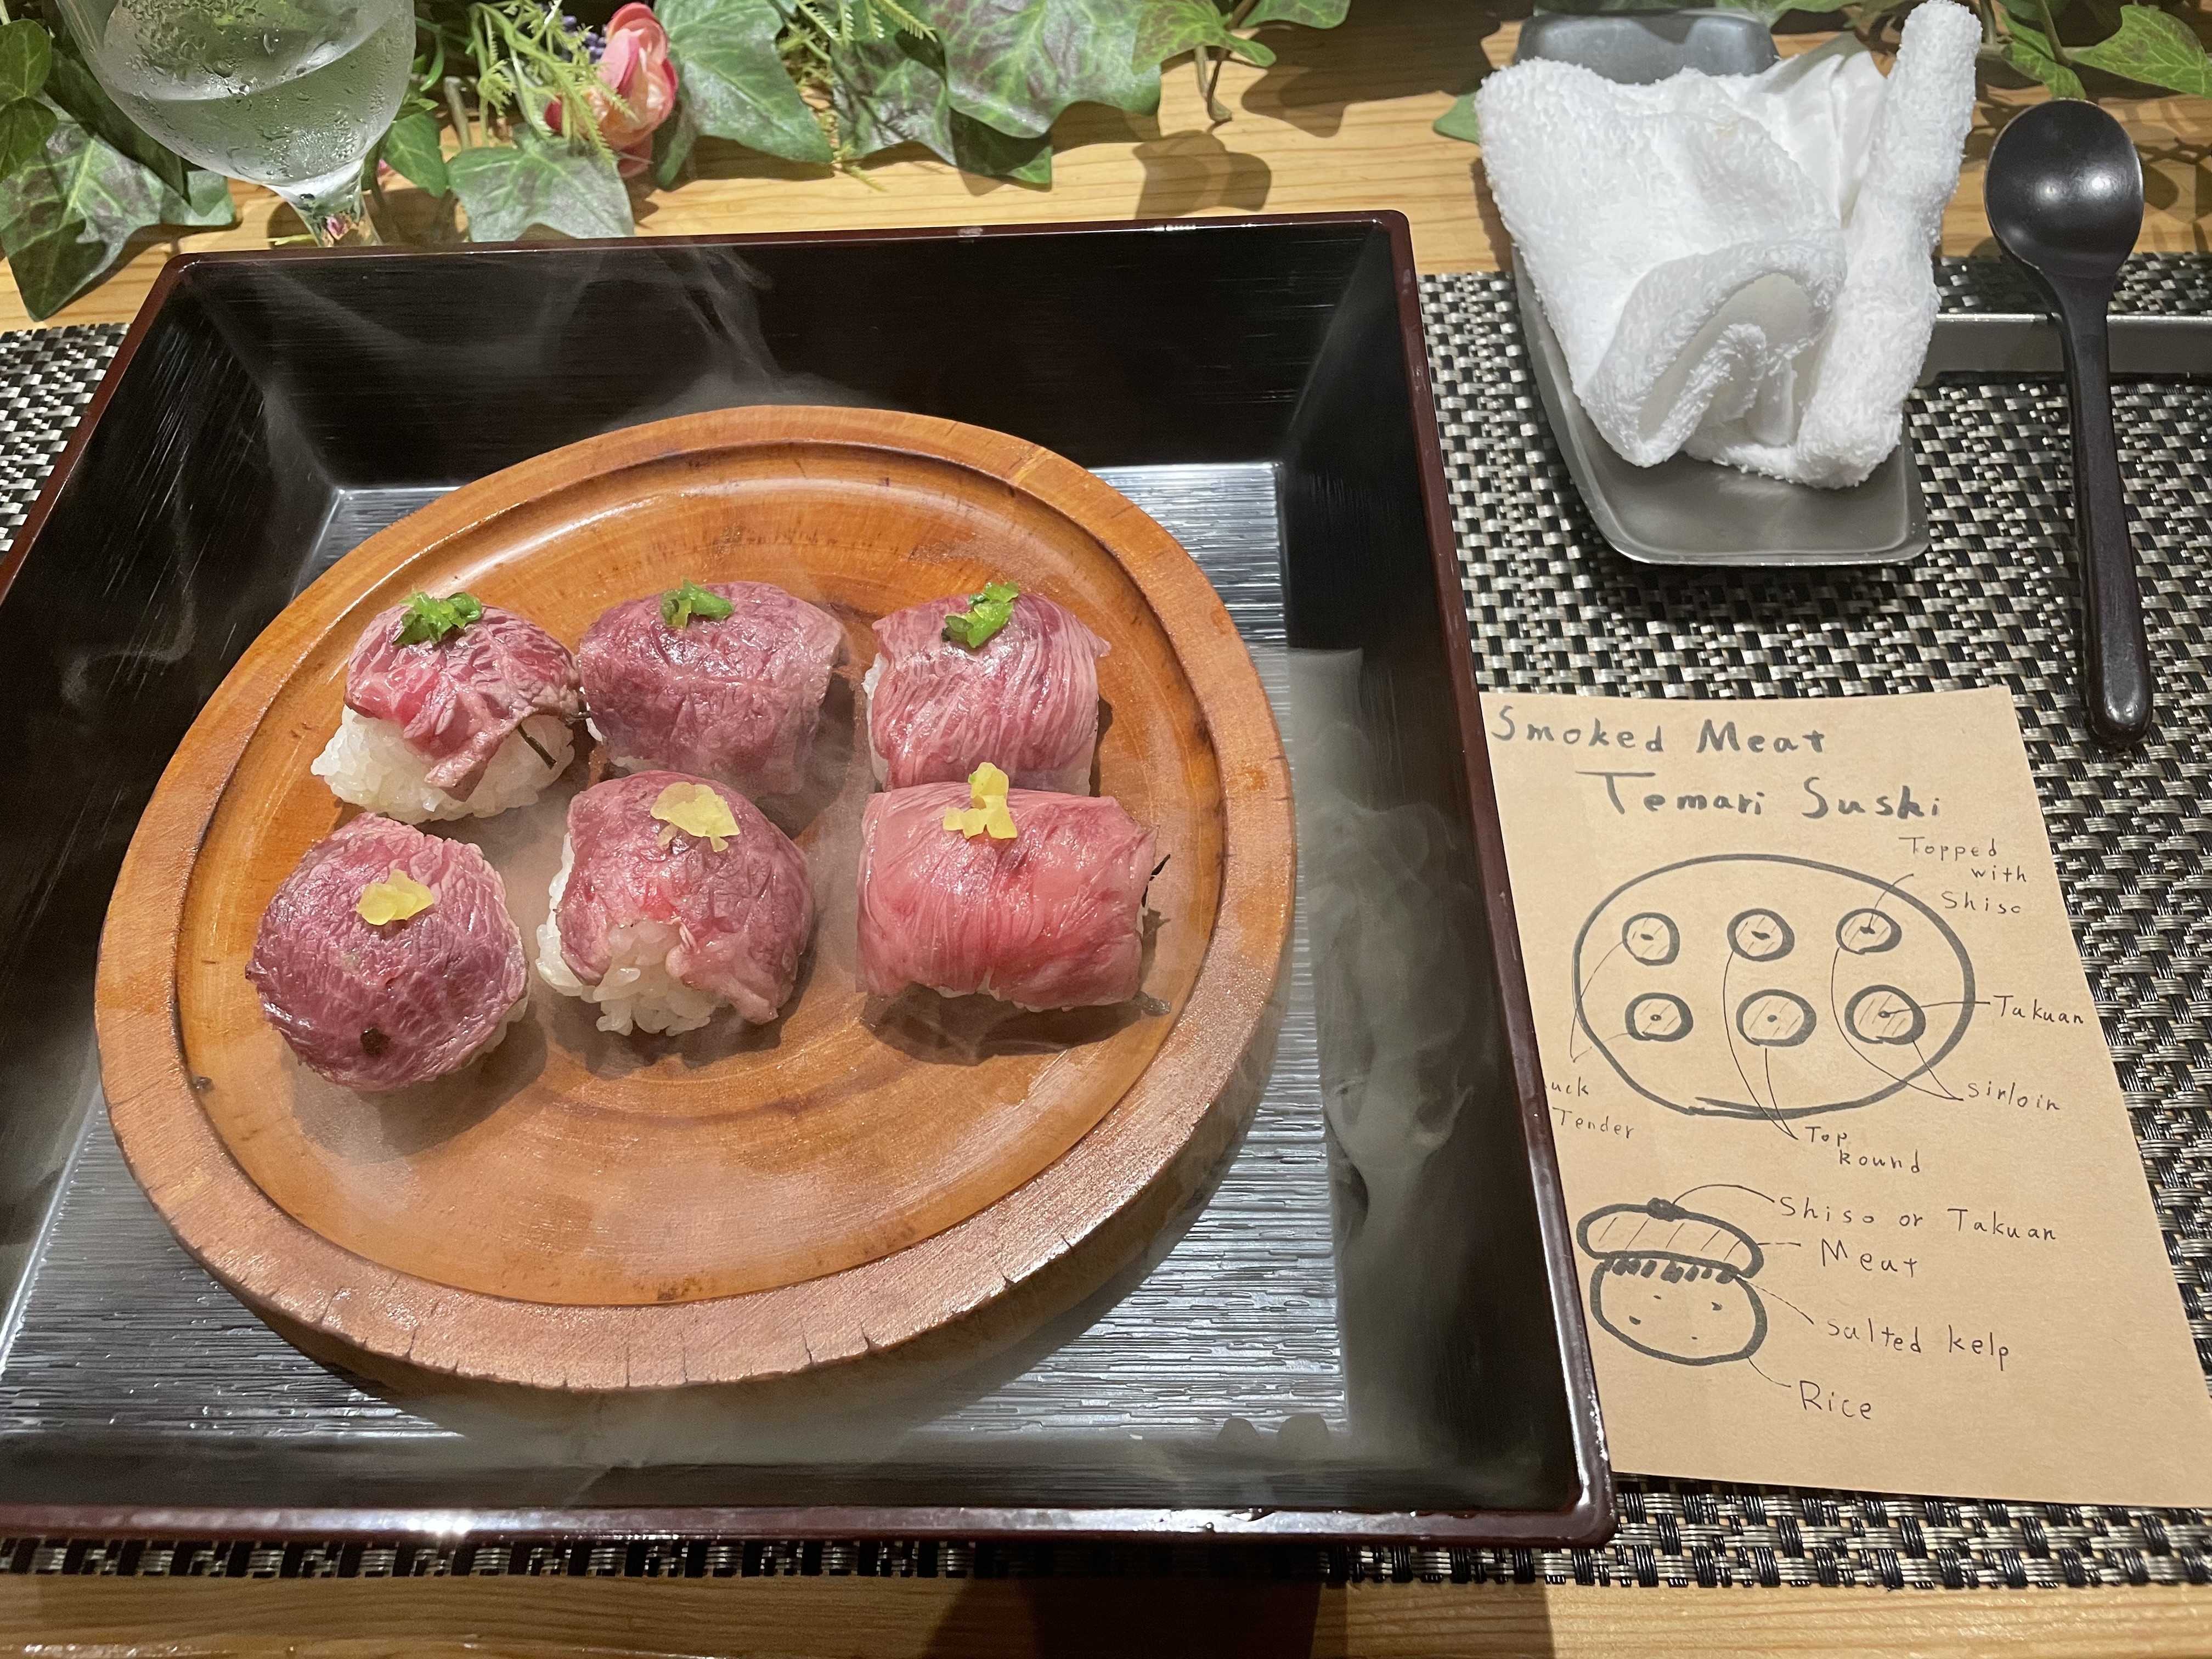 Smoked Meat
Temari Sushi
Topped
with
Shiso
Takuan
sirloin
uck
Tender
Top
Round
Shiso or Takuan
Meat
salted kelp
Rice